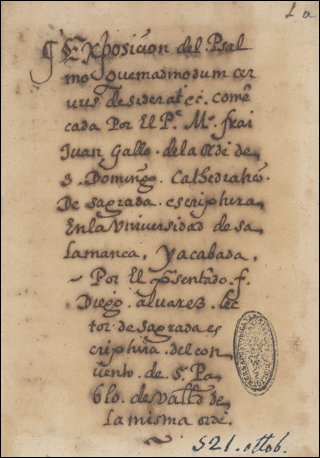 La
¶ Exposicion del Psal
mo quemadmodum cer
uus desiderat etc. comē
çada Por El Pᵉ Mᵒ frai
Juan Gallo de la ordē de
S. Domingo Cathedratico
De Sagrada escriptura
En la Vniuersidad de sa
lamanca, y acabada,
Por El psentado f.
Diego aluarez lec
tor de Sagrada es
criptura del con
uento de S. Pa
blo de Valld de
la misma ordē.
S 21. octob.